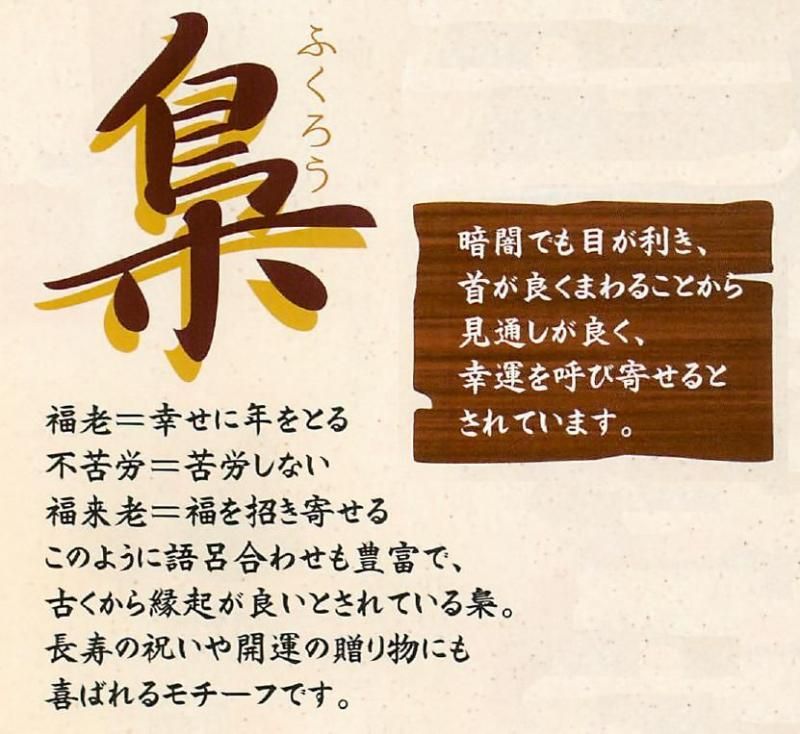 梟
ふくろう
暗闇でも目が利き、
首が良くまわることから
見通しが良く、
幸運を呼び寄せると
されています。
福老＝幸せに年をとる
不苦労＝苦労しない
福来老＝福を招き寄せる
このように語呂合わせも豊富で、
古くから縁起が良いとされている梟。
長寿の祝いや開運の贈り物にも
喜ばれるモチーフです。